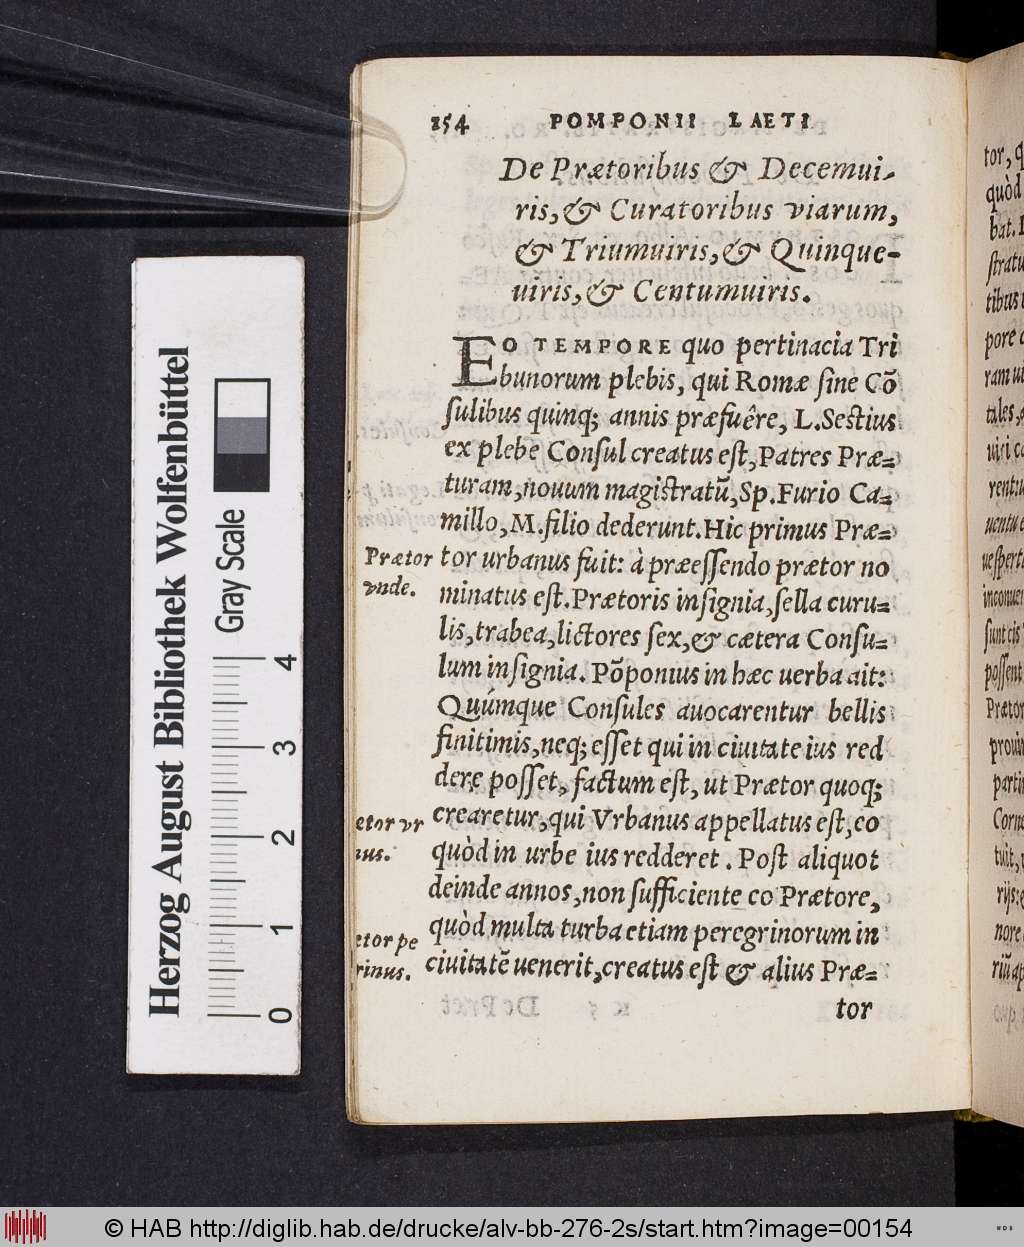 154 POMPONII LAETI
De Prætoribus & Decemui-
ris, & Curatoribus viarum,
& Triumuiris, & Quinque-
uiris, & Centumuiris.
EO TEMPORE quo pertinacia Tri
bunorum plebis, qui Romæ ſine Cõ
ſulibus quinq; annis præfuêre, L. Sestius
ex plebe Conſul creatus eſt, Patres Præ=
turam, nouum magiſtratũ, Sp. Furio Ca=
millo, M. filio dederunt. Hic primus Præ=
Prætor
vnde.
tor urbanus fuit: à præeſſendo prætor no
minatus eſt. Prætoris inſignia, ſella curu=
lis, trabea, lictores ſex, & cætera Conſu=
lum inſignia. Põponius in hæc uerba ait:
Quúmque Conſules auocarentur bellis
finitimis, neq; eſſet qui in ciuitate ius red
dere poſſet, factum eſt, ut Prætor quoq;
etor vr
nus.
crearetur, qui Vrbanus appellatus eſt, eo
quòd in urbe ius redderet. Poſt aliquot
deinde annos, non ſufficiente eo Prætore,
etor pe
rinus.
quòd multa turba etiam peregrinorum in
ciuitatẽ uenerit, creatus eſt & alius Præ=
tor
tor, q
quòd
bat. I
ſtratu
tibus
pore
ram ui
tales,
uiri c
rentu
uentu
ueſperti
inconuen
ſunt cis
poſſent
Prætor
prouin
parti
Corne
tuit,
rijs:
nore
riũ ap
Herzog August Bibliothek Wolfenbüttel
Gray Scale
0 1 2 3 4
© HAB http://diglib.hab.de/drucke/alv-bb-276-2s/start.htm?image=00154